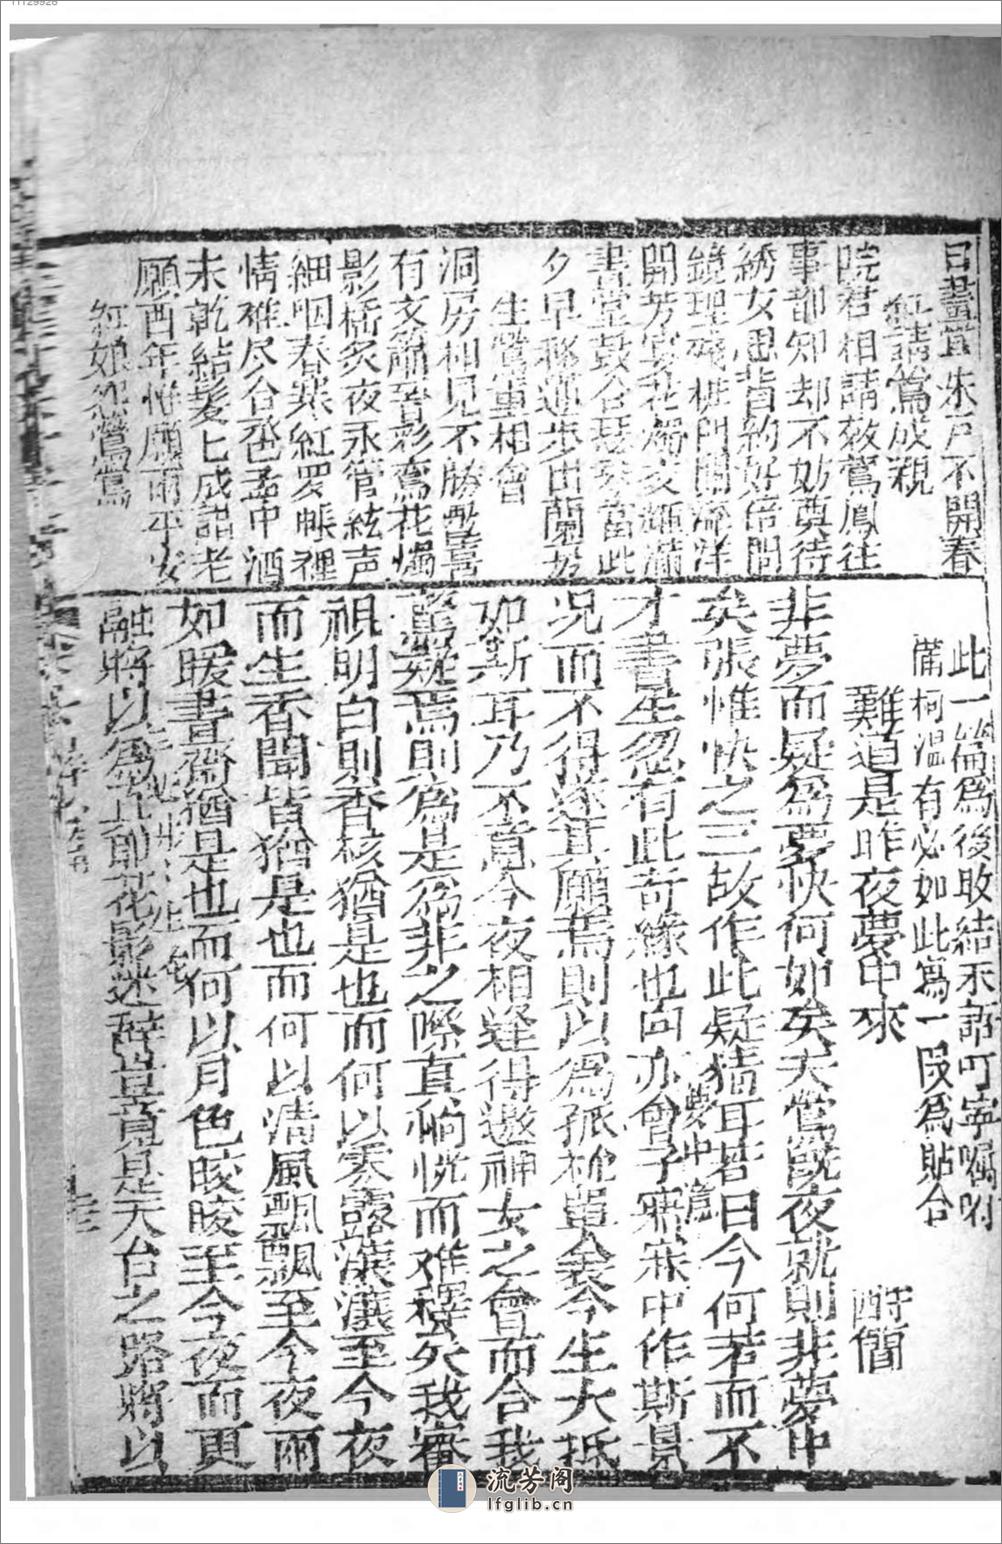 日晝賞朱戶不開春
紅請鶯成親
院君相請效鸞鳳往
事都知却不妨莫待
綉女思背約好倍問
鏡理殘桃門開流洋
開芳宴花燭交輝滿
書堂鼓合琴當此
夕早移蓮步出蘭房
生鶯重相會
洞房相見不勝歡喜
有文簫音彩鸞花燭
影搖炙夜永管絃声
細咽春寒紅罗帳裡
情难尽合卺盃中酒
未乾結髮匕成諧老
願百年惟願兩平安
紅娘怨鶯鶯
此一篇為後敗結末詔叮寧囑咐
蘭柯温有必如此寫一段為貼合
難道是昨夜夢中來
酧簡
非夢而疑為夢快何如矣夫鶯既夜就則非夢中
矣張惟快之三故作此疑猜耳若曰今何若而不
夢中意
才書生忽有此奇緣也向亦曾子寤寐中作斯景
况而不得遂其願焉則以為孤枕單衾今生大抵
如斯耳乃不意今夜相逢得邀神女之會而合我
驚疑焉則為是為非之際真惝恍而难釋矣我審
視明白則香核猶是也而何以零露瀼瀼至今夜
而生香聞皆猶是也而何以清風飄飄至今夜而
如暖書齋猶是也而何以月色皎皎至今夜而更
融將以為此即花影迷辭豈竟是天台之路將以